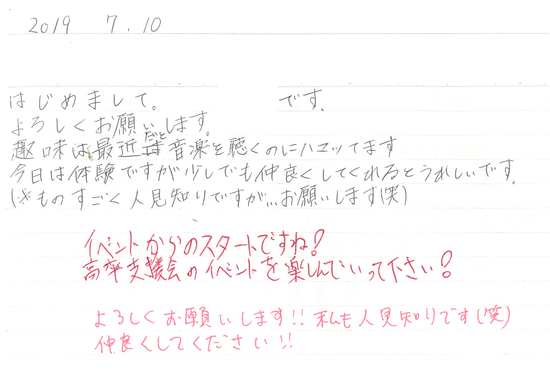 2019 7.10
はじめまして。 です。
よろしくお願いします。
趣味は最近だと音楽を聴くのにハマッてます
今日は体験ですが少しでも仲良くしてくれるとうれしいです。
ものすごく人見知りですが…お願いします(笑)
イベントからのスタートですね!
高卒支援会のイベントを楽しんでいって下さい!
よろしくお願いします!! 私も人見知りです(笑)
仲良くしてください!!